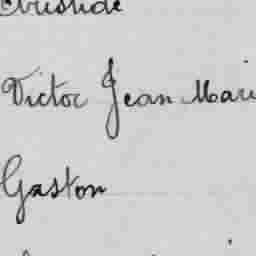 Aristide
Victor Jean Mari
Gaston